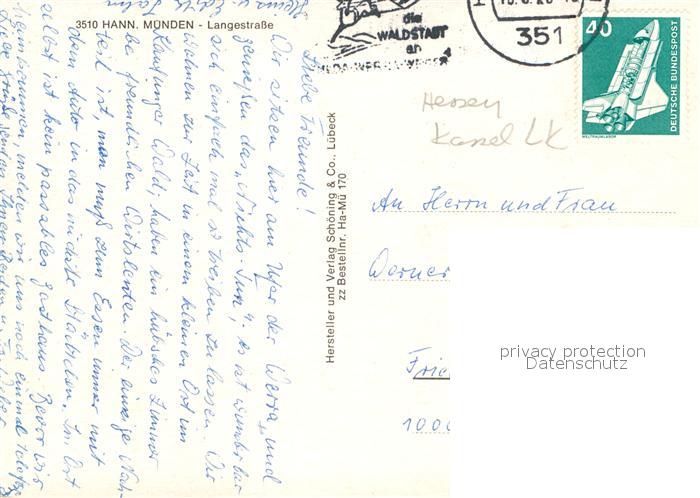 3510 HANN. MÜNDEN - Langestraße
Liebe Freunde!
Wir sitzen hier am Ufer der Werra und
genießen das „Nichts-Tun“. Es ist wunderbar
sich einfach mal so treiben zu lassen. Wir
wohnen zur Zeit in einem kleinen Ort im
Kaufunger Wald, haben ein hübsches Zimmer
bei freundlichen Wirtsleuten. Der einzige Nach-
teil ist, man muß zum Essen immer mit
dem Auto in das nächste Städtchen. Im Ort
selbst ist kein passables Gasthaus. Bevor wir
melden wir uns noch einmal
Hersteller und Verlag Schöning & Co., Lübeck
zz Bestellnr. Ha-Mü 170
die
WALDSTADT
an
351
40
DEUTSCHE BUNDESPOST
WELTRAUMLABOR
Hessen
Kassel LK
An Herrn und Frau
Werner
privacy protection
Datenschutz
1000